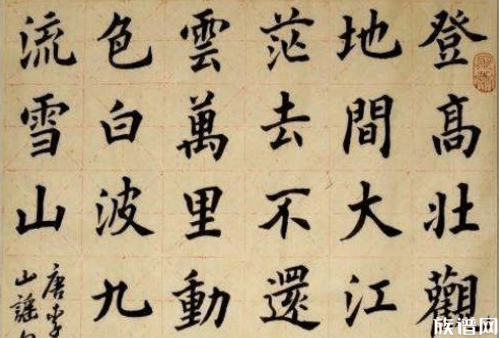 登高壯觀
地間大江
茫去不還
雲萬里動
色白波九
流雪山
唐李
山謠
族谱网